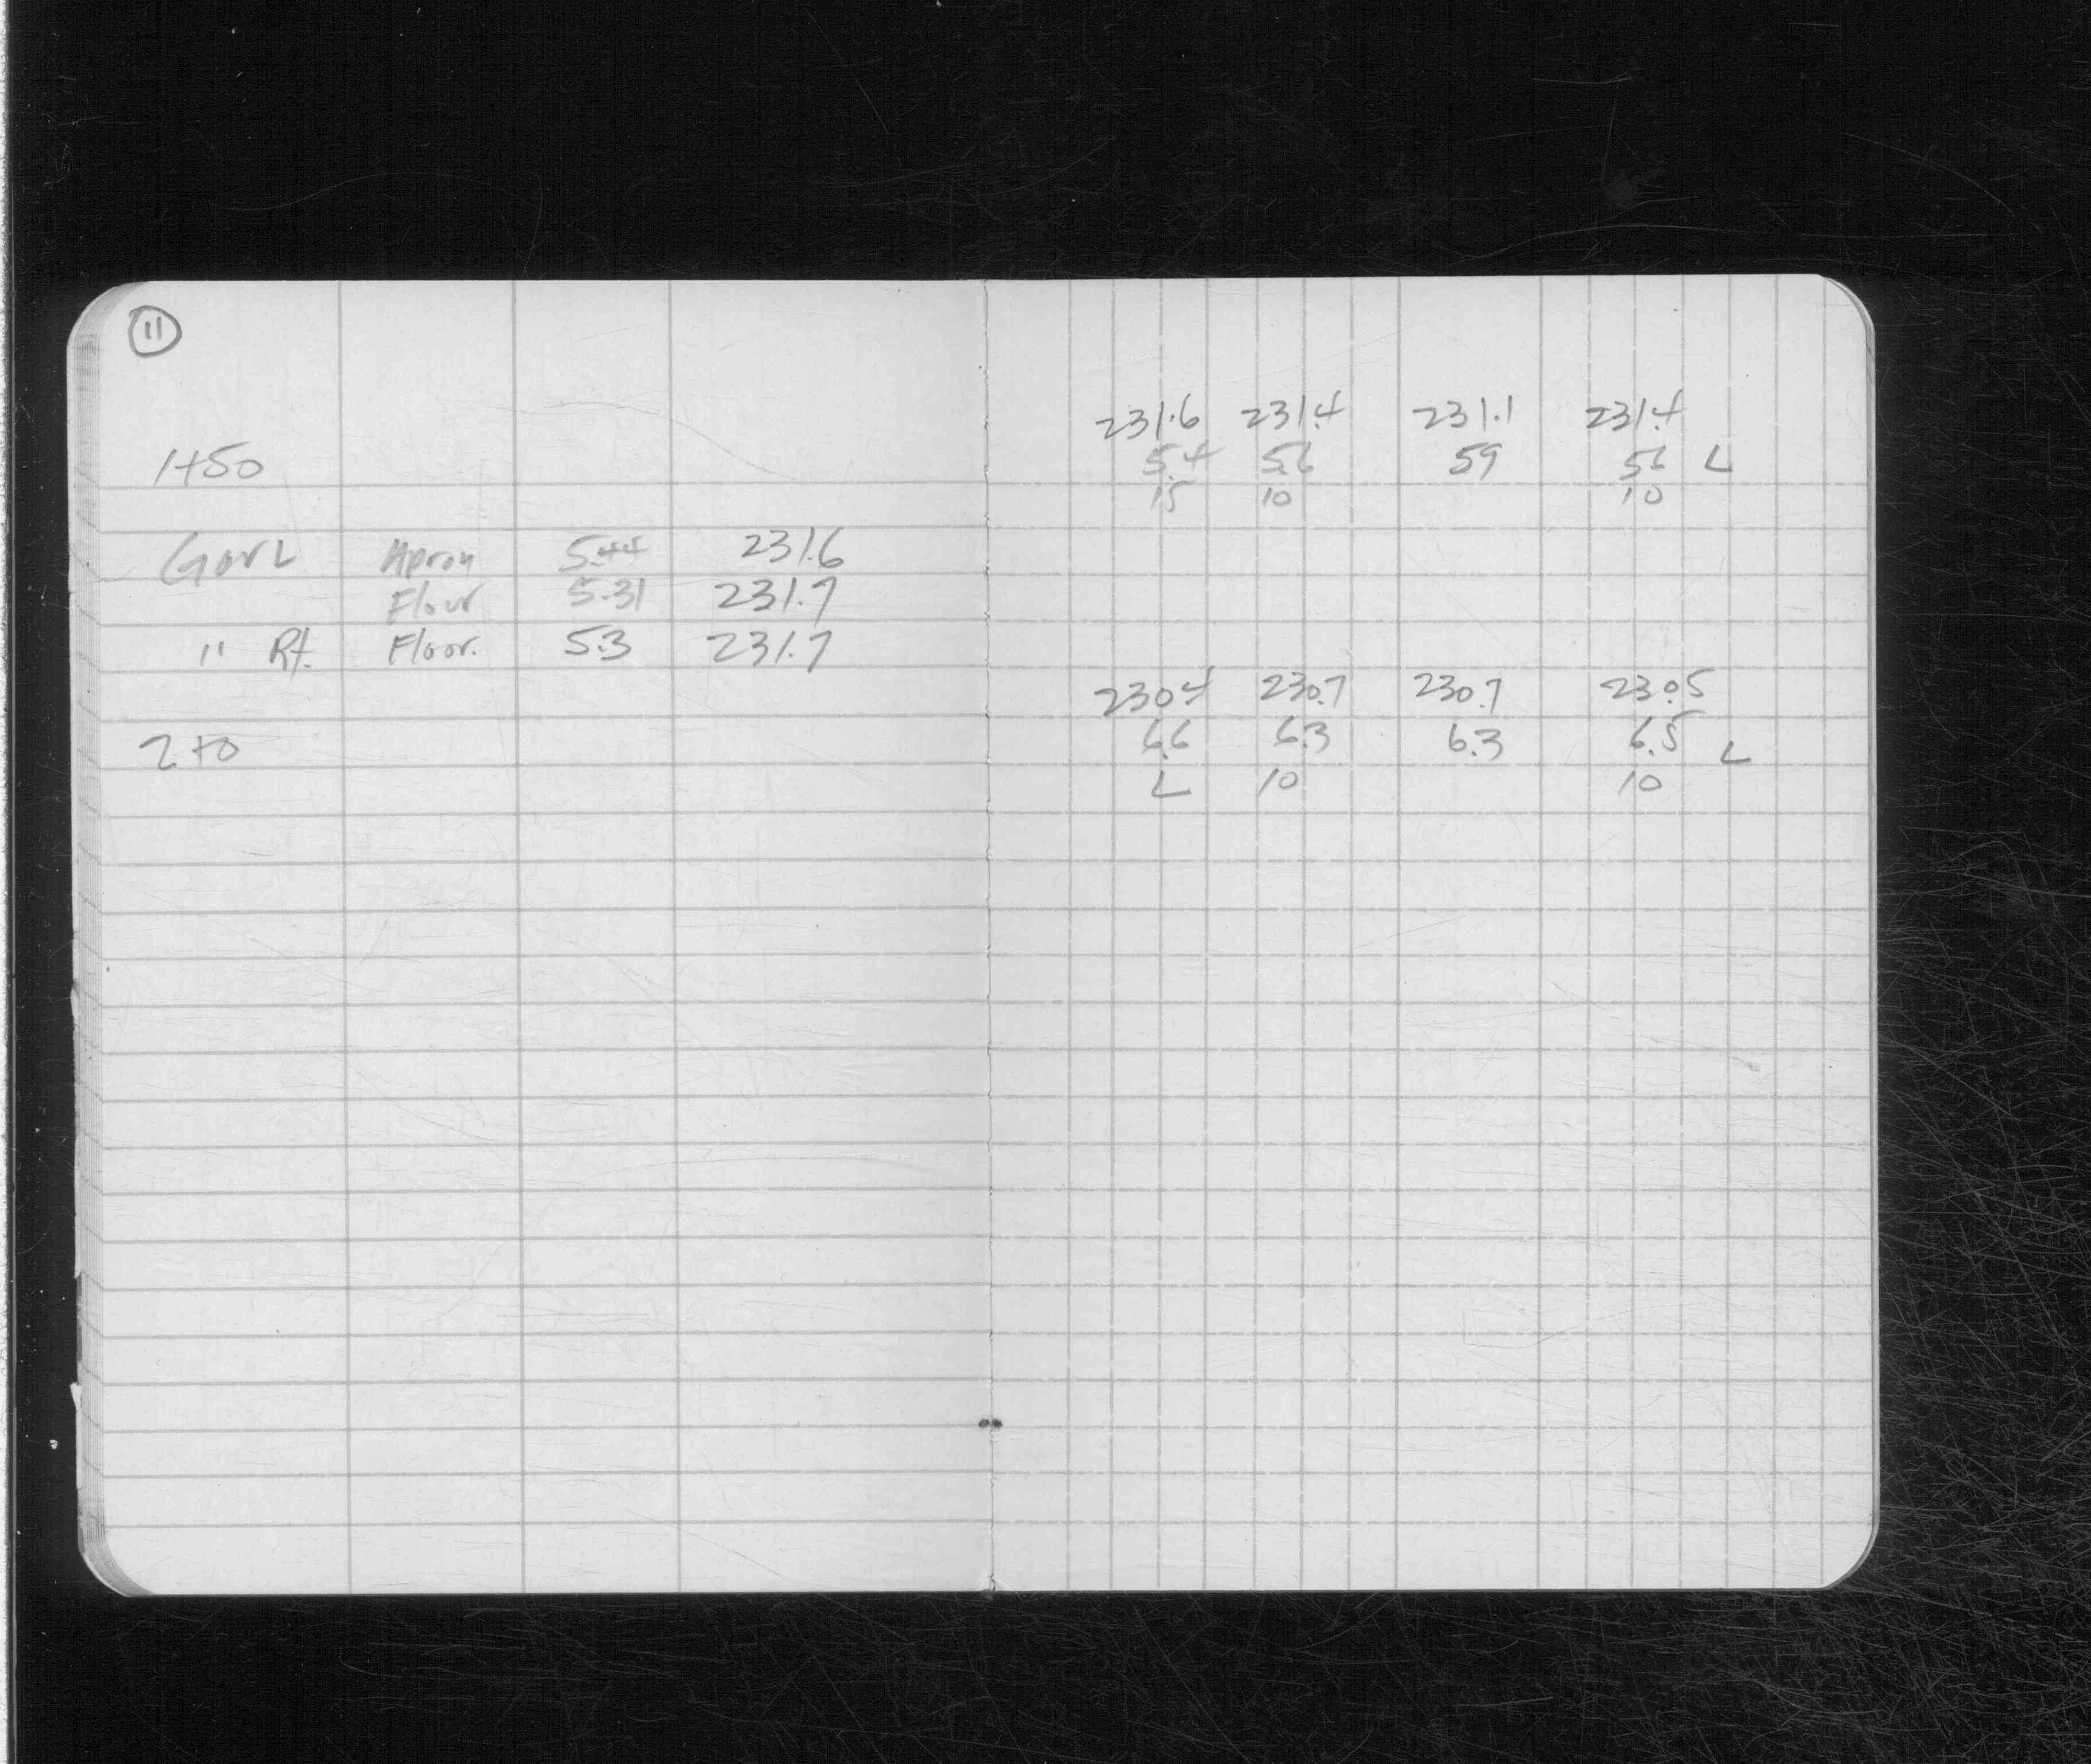 11
231.6 231.4 231.1 231.4
1+50 5.4 5.6 59 56 L
15 10 10
Gar L Apron 5.44 231.6
Floor 5.31 231.7
" Rt. Floor. 5.3 231.7
230.4 230.7 230.7 230.5
2+0 6.6 6.3 6.3 6.5 L
L 10 10